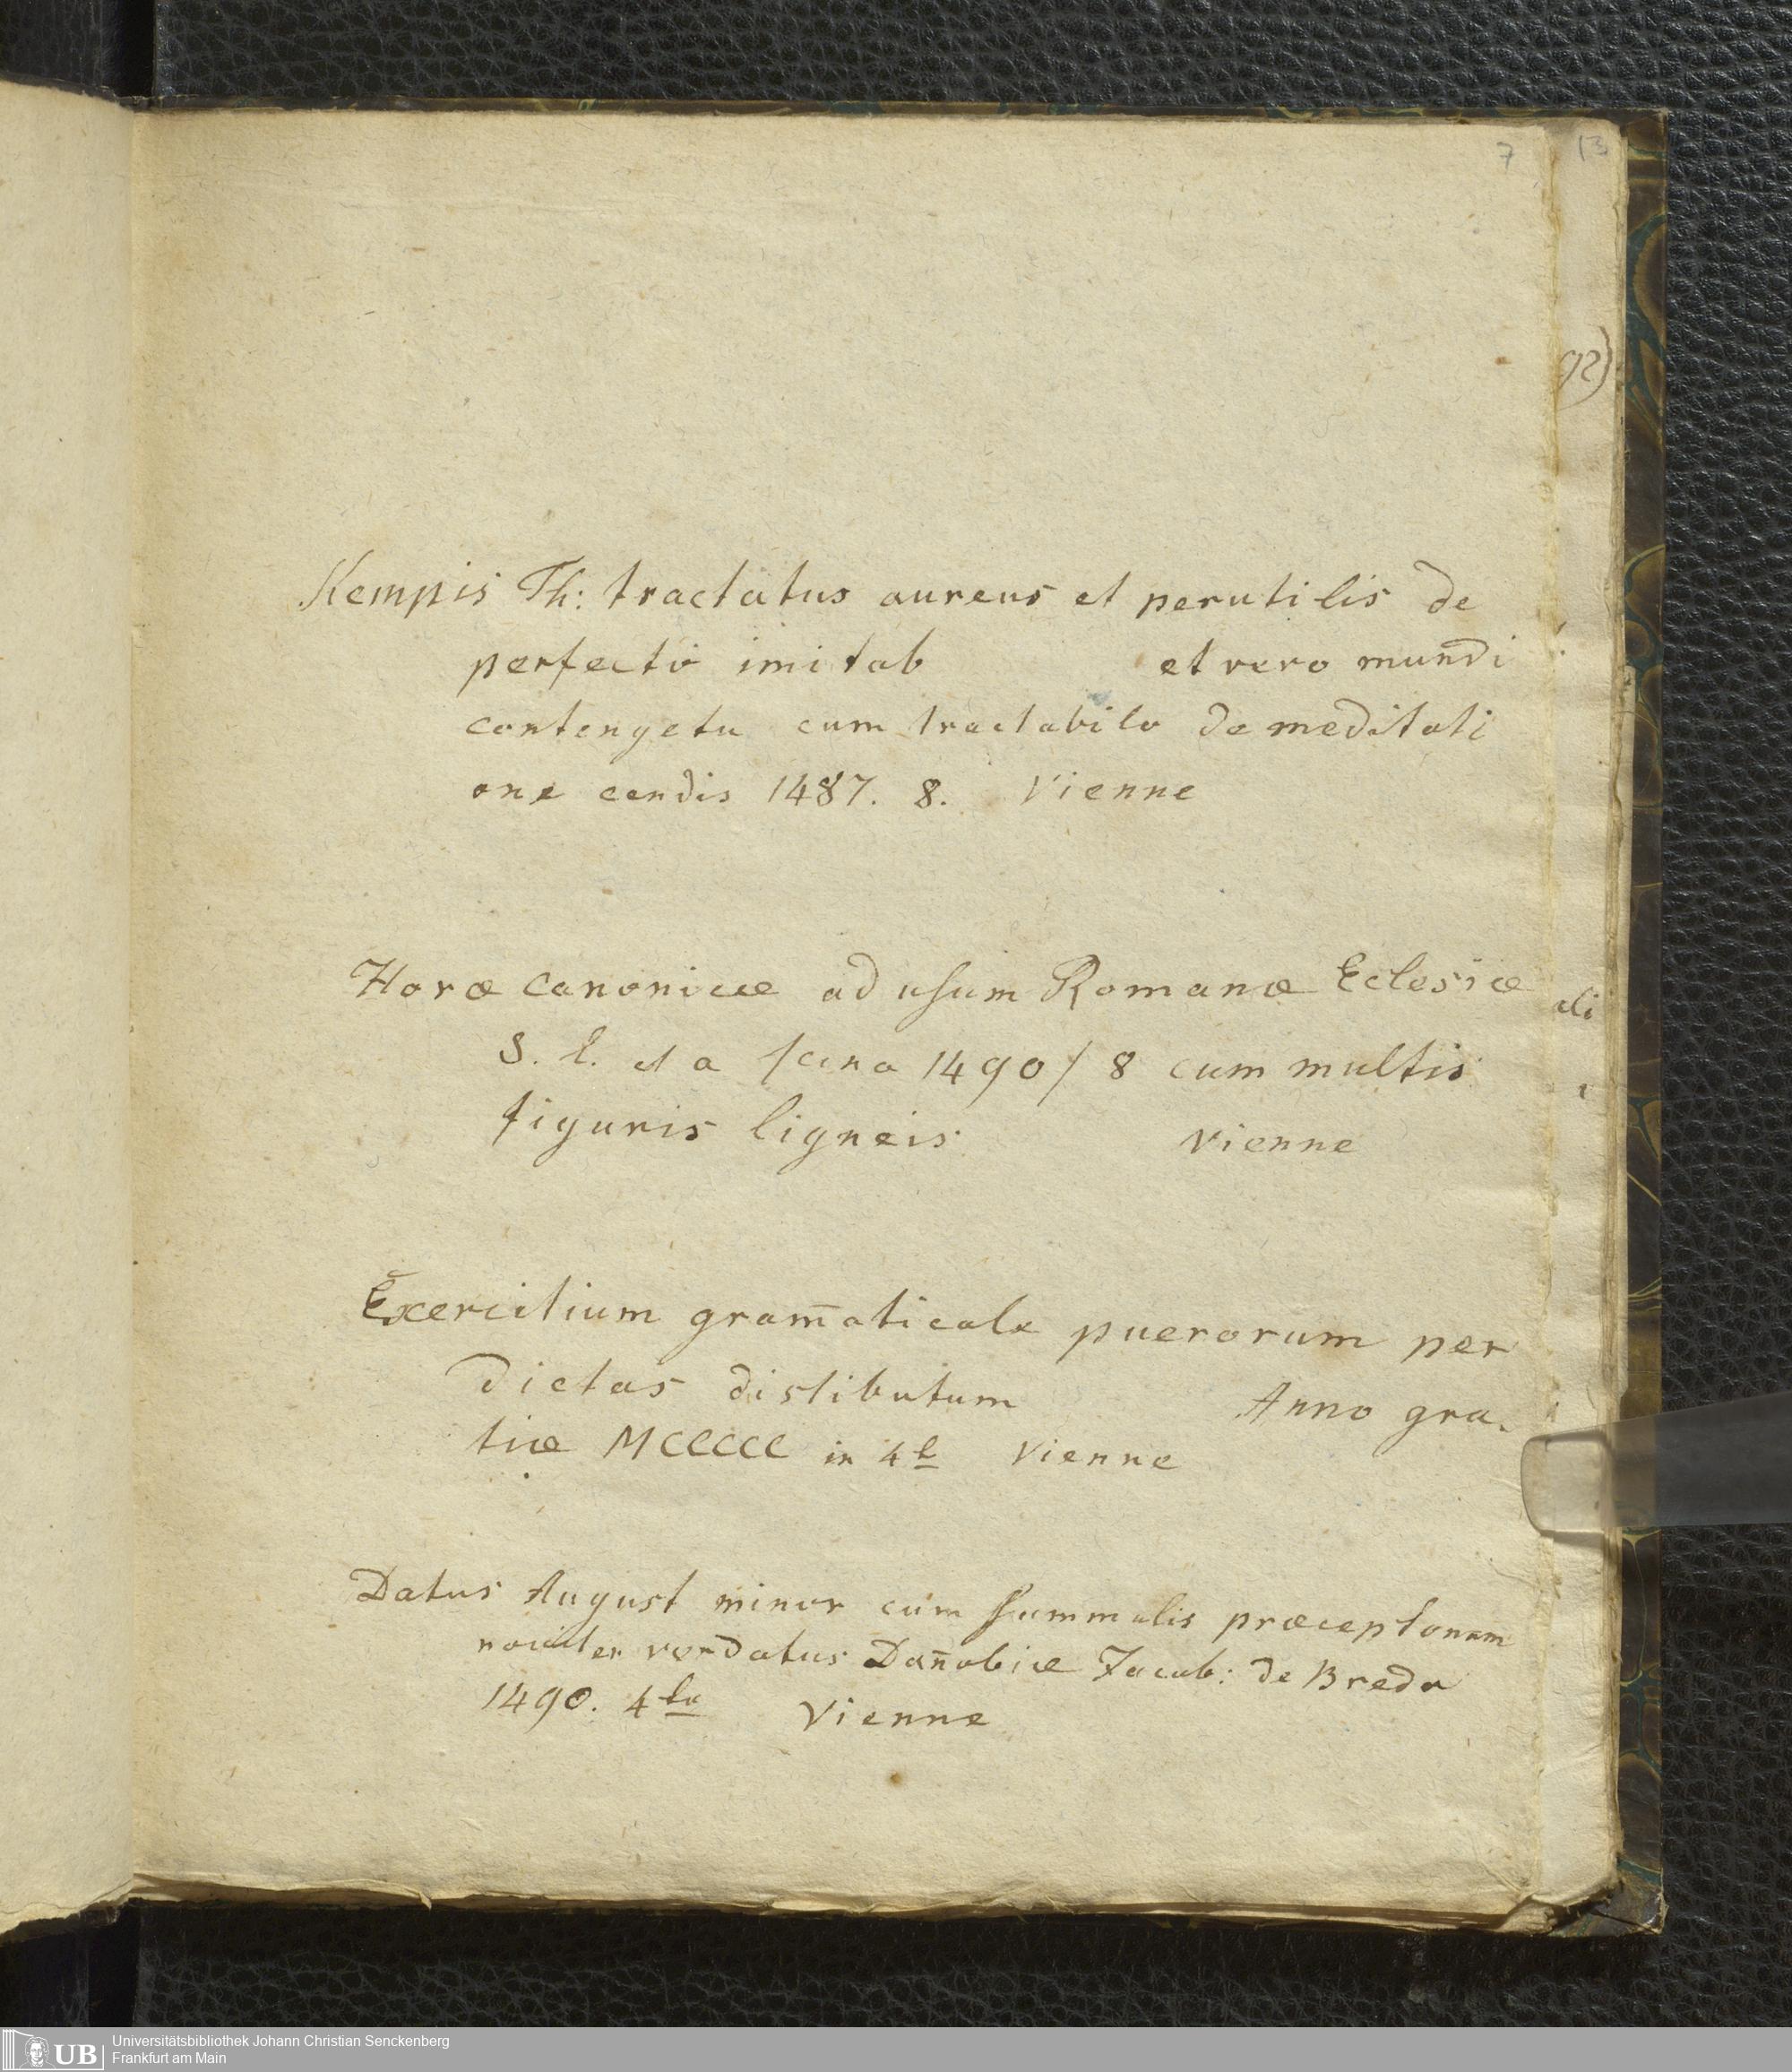 7
13
92)
Kempis Th: tractatus aureus et perutilis de
perfecto imitab et vero mundi
contengetu cum tractabilo de meditati
one cendis 1487. 8. Vienne
Horæ canonicæ ad usum Romanæ Eclesiæ
S. l. et a 1490/ 8 cum multis
figuris ligneis Vienne
Exercitium gram̄aticale puerorum per
dietas distibutum Anno gra.
tiæ MCCCCC in 4t Vienne
Datus August minor cum summulis præceptorum
noviter verdatus Dan̄abiæ Jacob: de Breda
1490. 4to Vienne
ali
UB
Universitätsbibliothek Johann Christian Senckenberg
Frankfurt am Main